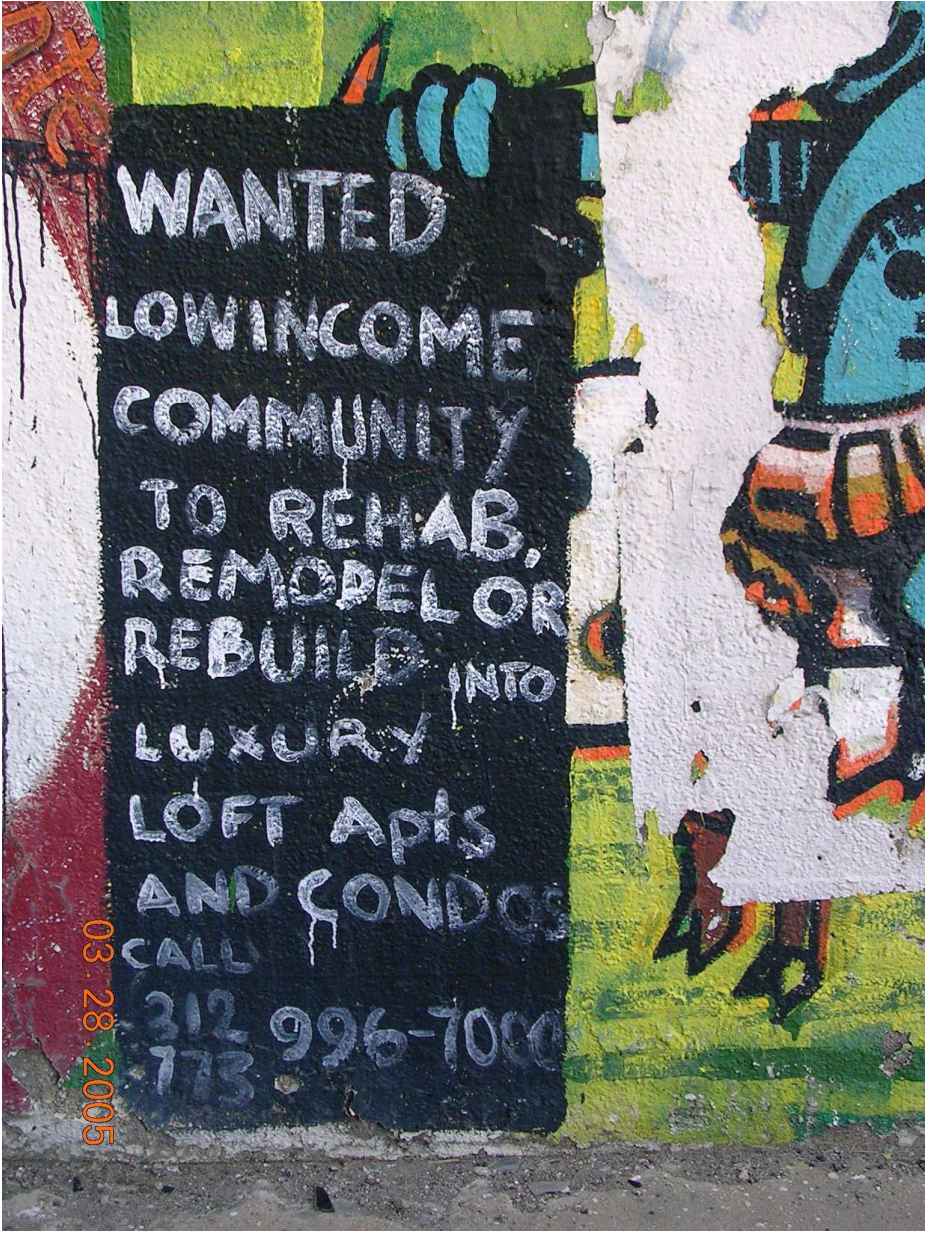 WANTED
LOWINCOME
COMMUNITY
TO REHAB,
REMODEL OR
REBUILD INTO
LUXURY
LOFT Apts
AND CONDOS
CALL
312 996-7000
773
03.28.2005